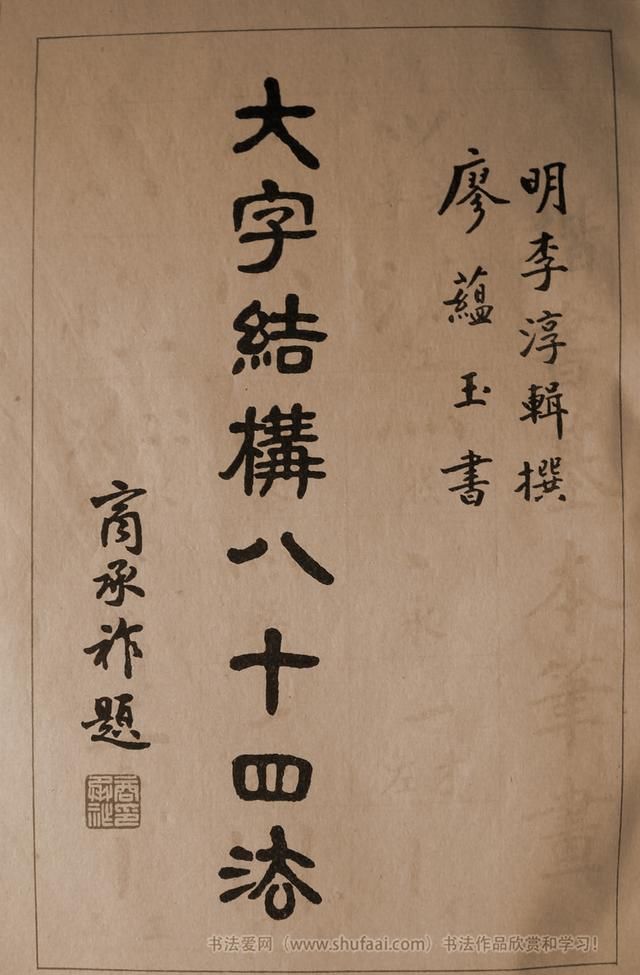 明李淳輯撰
廖蘊玉書
大字結構八十四法
商承祚題
書法爱网（www.shufaai.com）书法作品欣赏和学习！